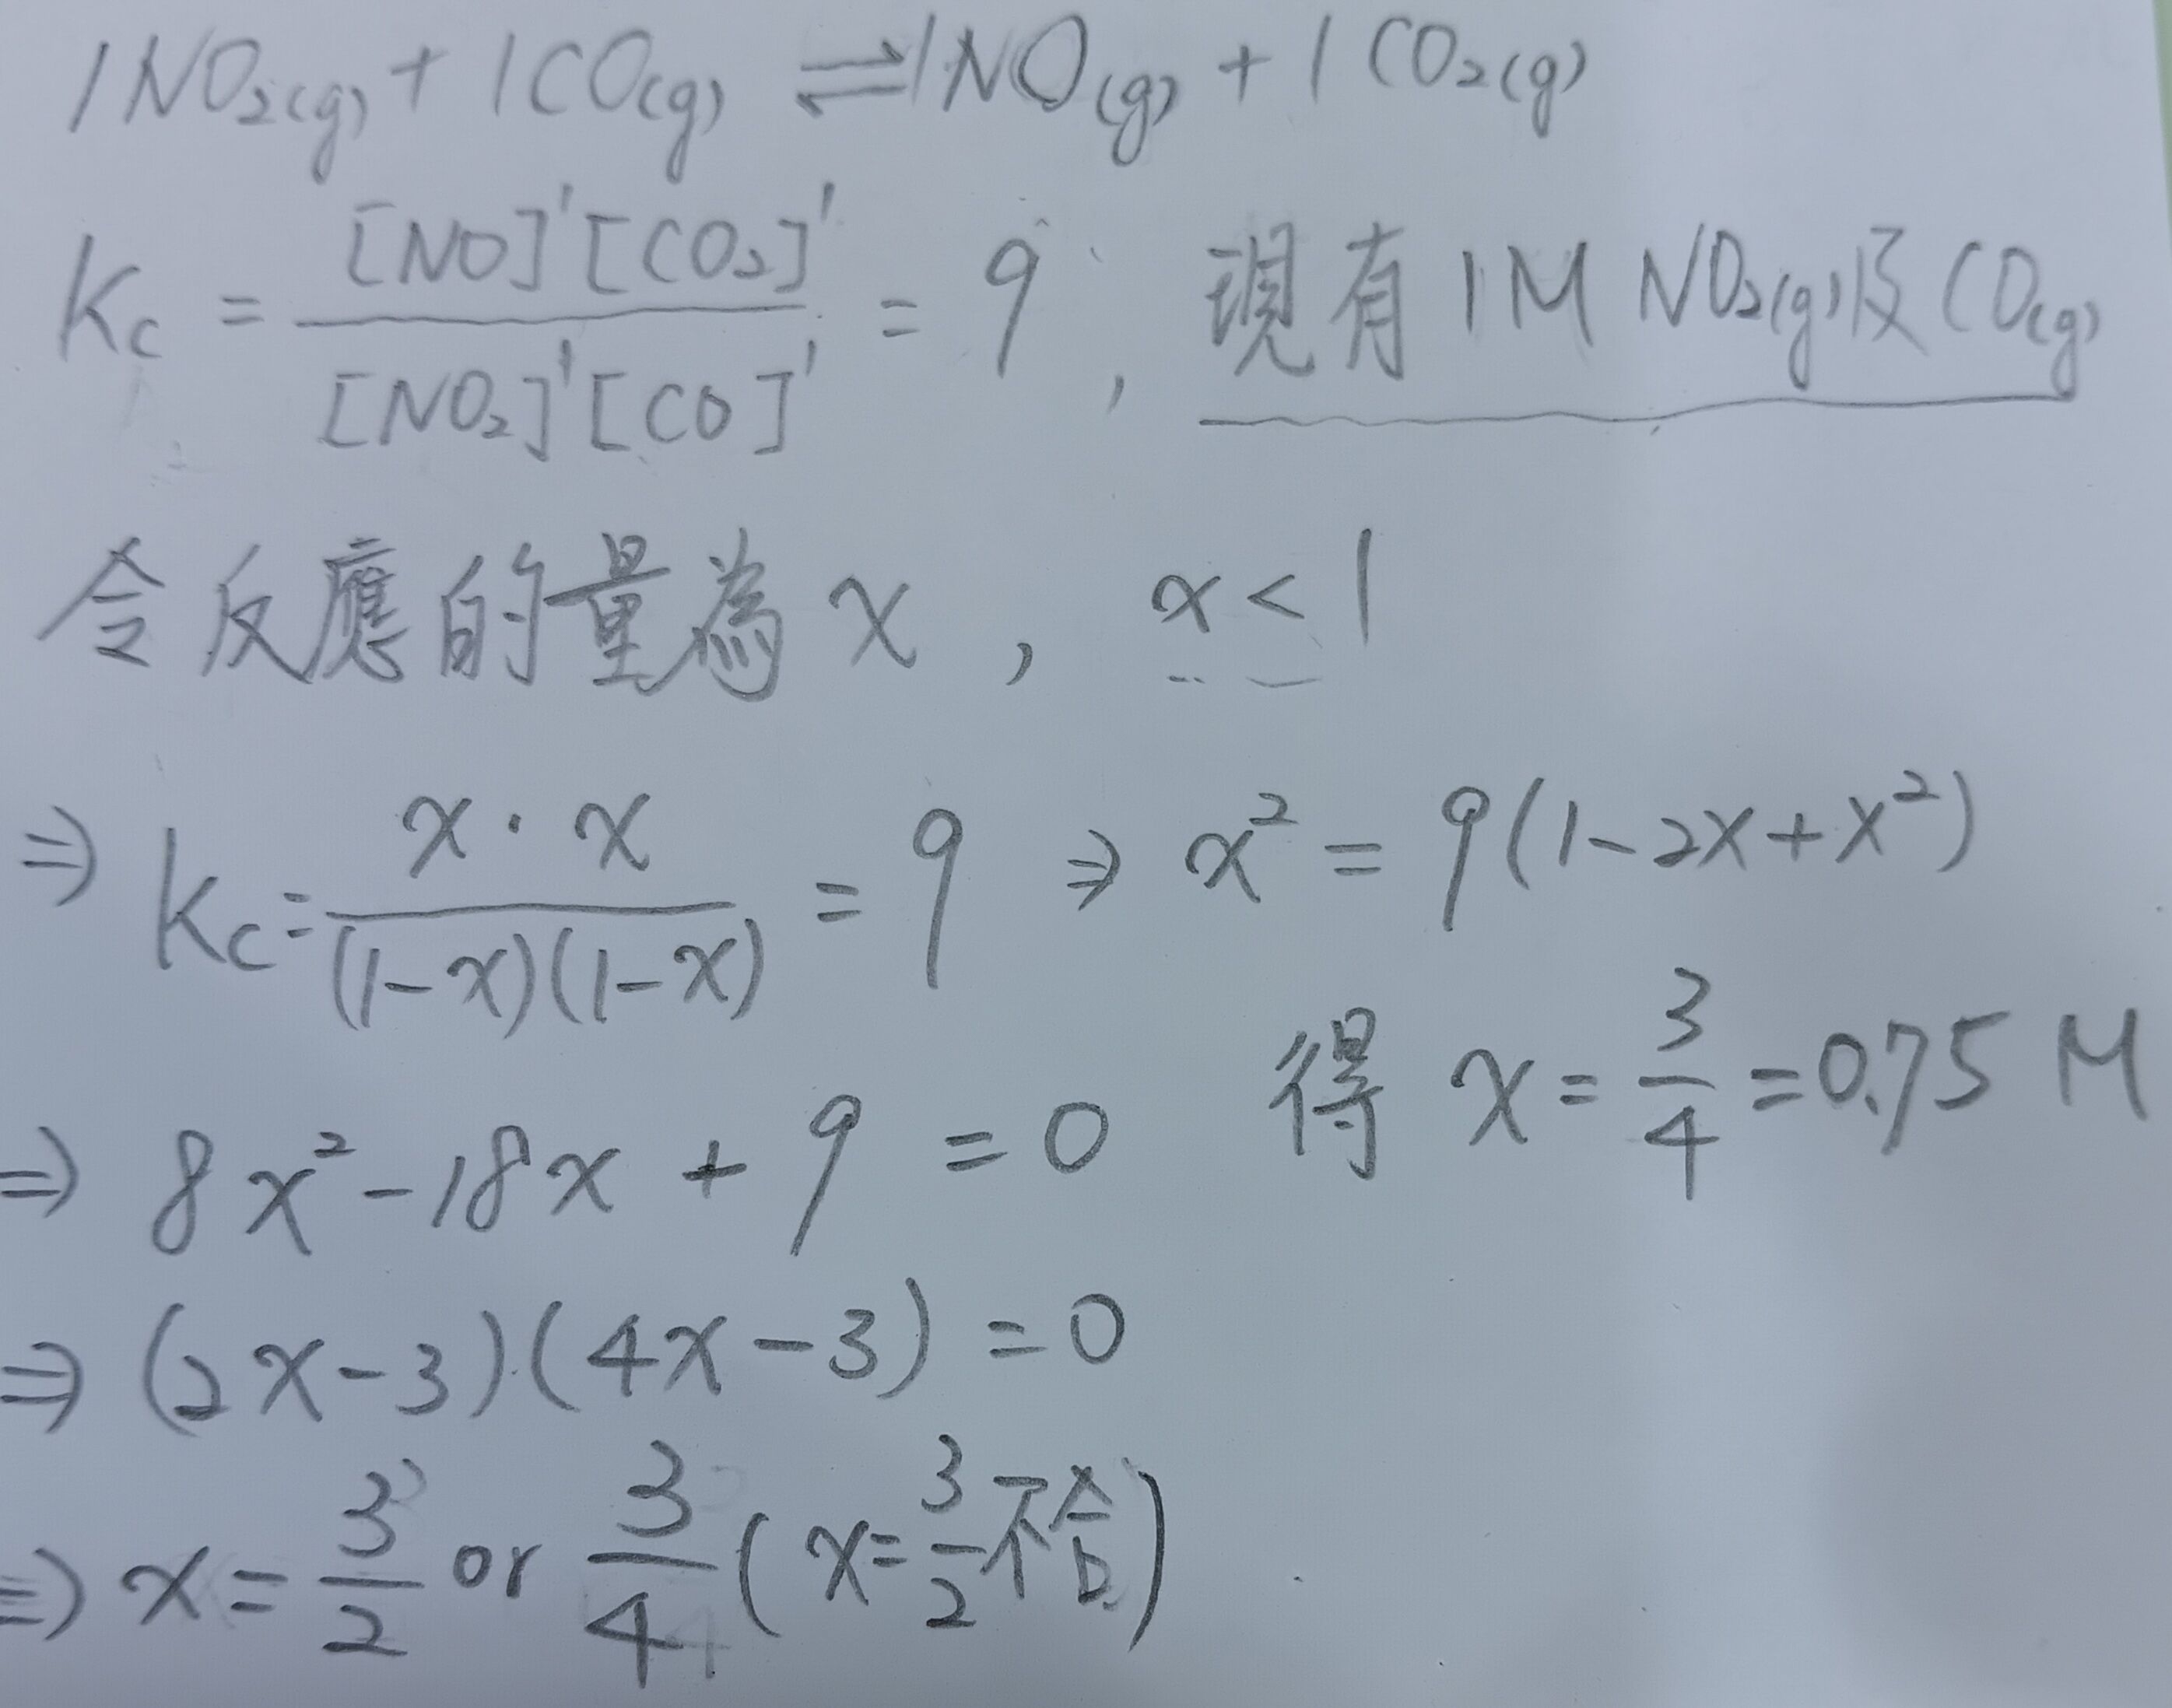 1NO₂(g) + 1CO(g) ⇌ 1NO(g) + 1CO₂(g)
Kc = [NO]¹[CO₂]¹ / [NO₂]¹[CO]¹ = 9 , 現有 1M NO₂(g)及CO(g)
令反應的量為 x , x < 1
⇒ Kc = x · x / (1-x)(1-x) = 9 ⇒ x² = 9(1-2x+x²)
⇒ 8x² - 18x + 9 = 0
⇒ (2x-3)(4x-3) = 0
⇒ x = 3/2 or 3/4 (x = 3/2 不合)
得 x = 3/4 = 0.75 M